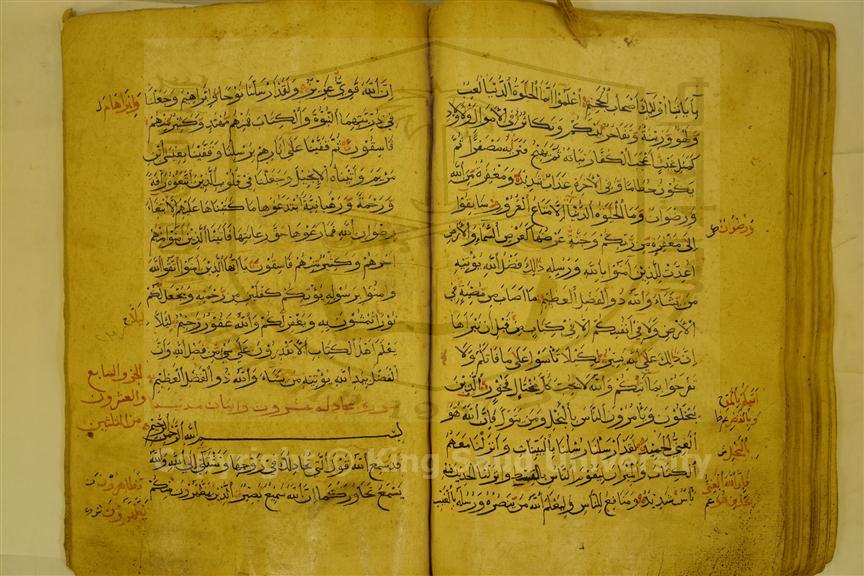 بآياتنا اولئك اصحاب الجحيم اعلموا انما الحيوة الدنيا لعب
ولهو وزينة وتفاخر بينكم وتكاثر في الاموال والاولاد
كمثل غيث اعجب الكفار نباته ثم يهيج فتراه مصفرا ثم
يكون حطاما وفي الاخرة عذاب شديد ومغفرة من الله
ورضوان وما الحيوة الدنيا الا متاع الغرور سابقوا
الى مغفرة من ربكم وجنة عرضها كعرض السماء والارض
اعدت للذين امنوا بالله ورسله ذلك فضل الله يؤتيه
من يشاء والله ذو الفضل العظيم ما اصاب من مصيبة في
الارض ولا في انفسكم الا في كتاب من قبل ان نبراها
ان ذلك على الله يسير لكيلا تأسوا على ما فاتكم ولا
تفرحوا بما اتيكم والله لا يحب كل مختال فخور الذين
يبخلون ويأمرون الناس بالبخل ومن يتول فان الله هو
الغني الحميد لقد ارسلنا رسلنا بالبينات وانزلنا معهم
الكتاب والميزان ليقوم الناس بالقسط وانزلنا الحديد فيه
بأس شديد ومنافع للناس وليعلم الله من ينصره ورسله بالغيب
ورضوان
بالبخل
فان الله الغني
ان الله قوي عزيز ولقد ارسلنا نوحا وابراهيم وجعلنا
في ذريتهما النبوة والكتاب فمنهم مهتد وكثير منهم
فاسقون ثم قفينا على اثارهم برسلنا وقفينا بعيسى ابن
مريم واتيناه الانجيل وجعلنا في قلوب الذين اتبعوه رافة
ورحمة ورهبانية ابتدعوها ما كتبناها عليهم الا ابتغاء
رضوان الله فما رعوها حق رعايتها فاتينا الذين امنوا منهم
اجرهم وكثير منهم فاسقون يا ايها الذين امنوا اتقوا الله
وامنوا برسوله يؤتكم كفلين من رحمته ويجعل لكم
نورا تمشون به ويغفر لكم والله غفور رحيم لئلا
يعلم اهل الكتاب الا يقدرون على شيء من فضل الله وان
الفضل بيد الله يؤتيه من يشاء والله ذو الفضل العظيم
سورة المجادلة عشرون وايتان مدنية
بسم الله الرحمن الرحيم
قد سمع الله قول التي تجادلك في زوجها وتشتكي الى الله والله
يسمع تحاوركما ان الله سميع بصير الذين يظهرون منكم
وابراهام
ليلا
الجزو السابع
والعشرون
من الثلثين
Copyright © King Saud University